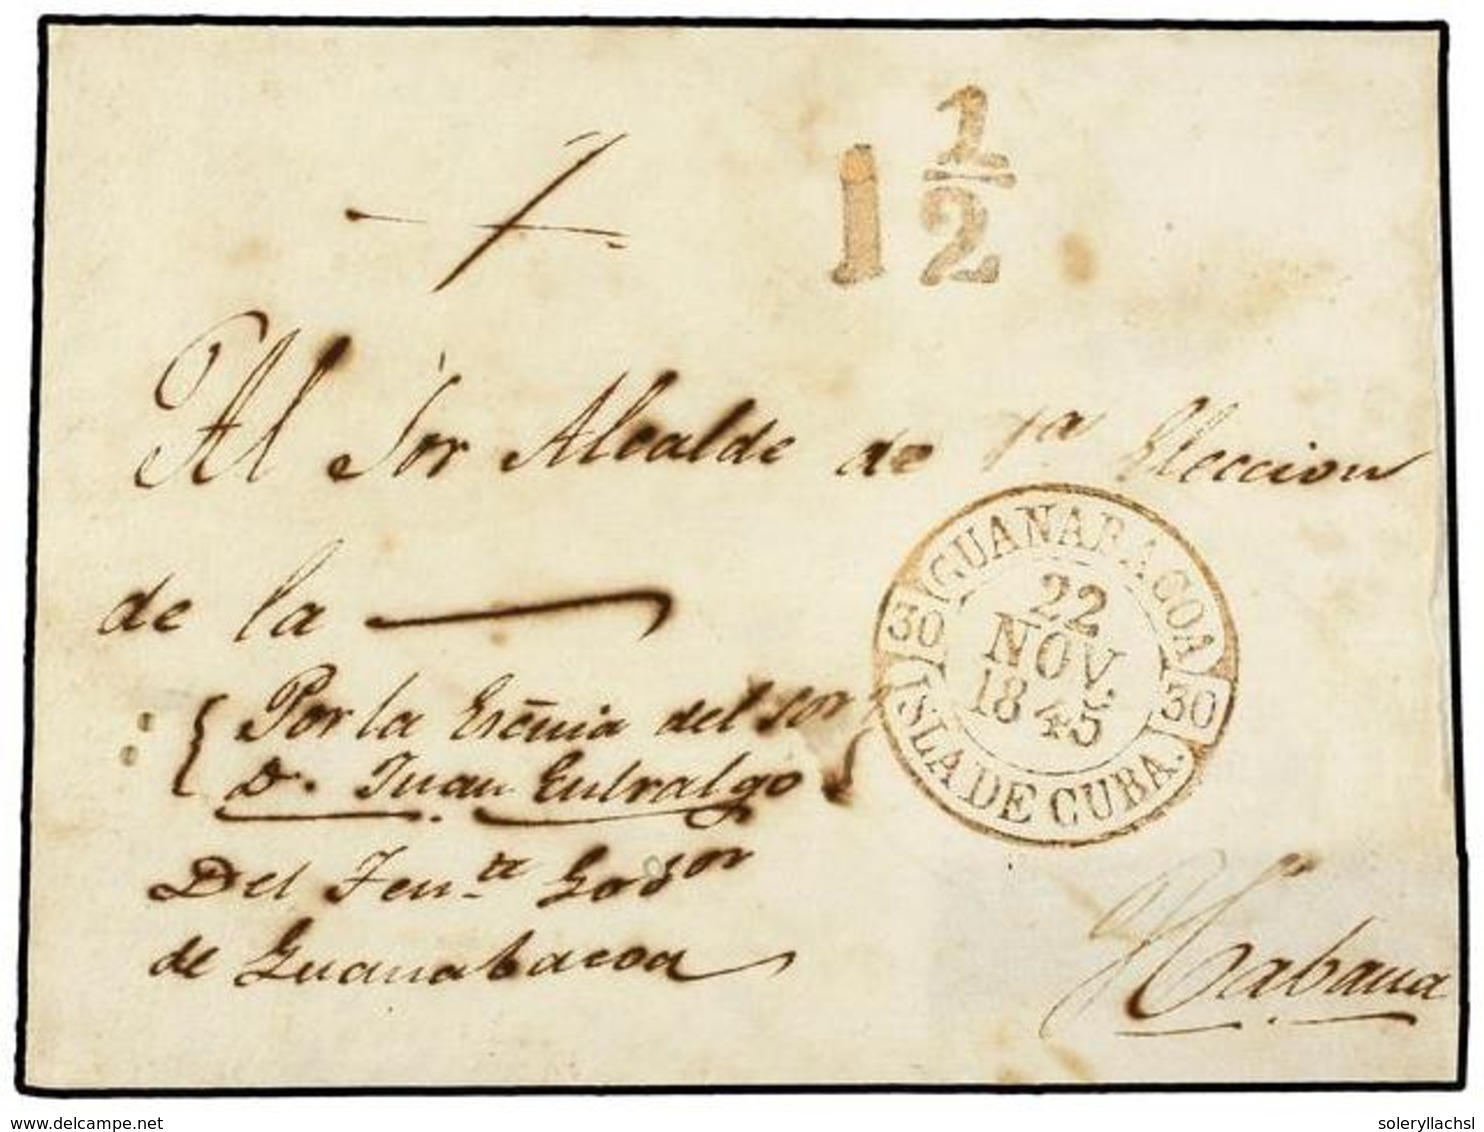 1 1/2
Al Sor Alcalde de 1a Eleccion
de la
Por la Escnia del Sor
D. Juan Entralgo
Del Tente Gobor
de Guanabacoa
GUANABACOA
30 30
22
NOV.
1845
ISLA DE CUBA.
Habana
www.delcampe.net
soleryllachsl